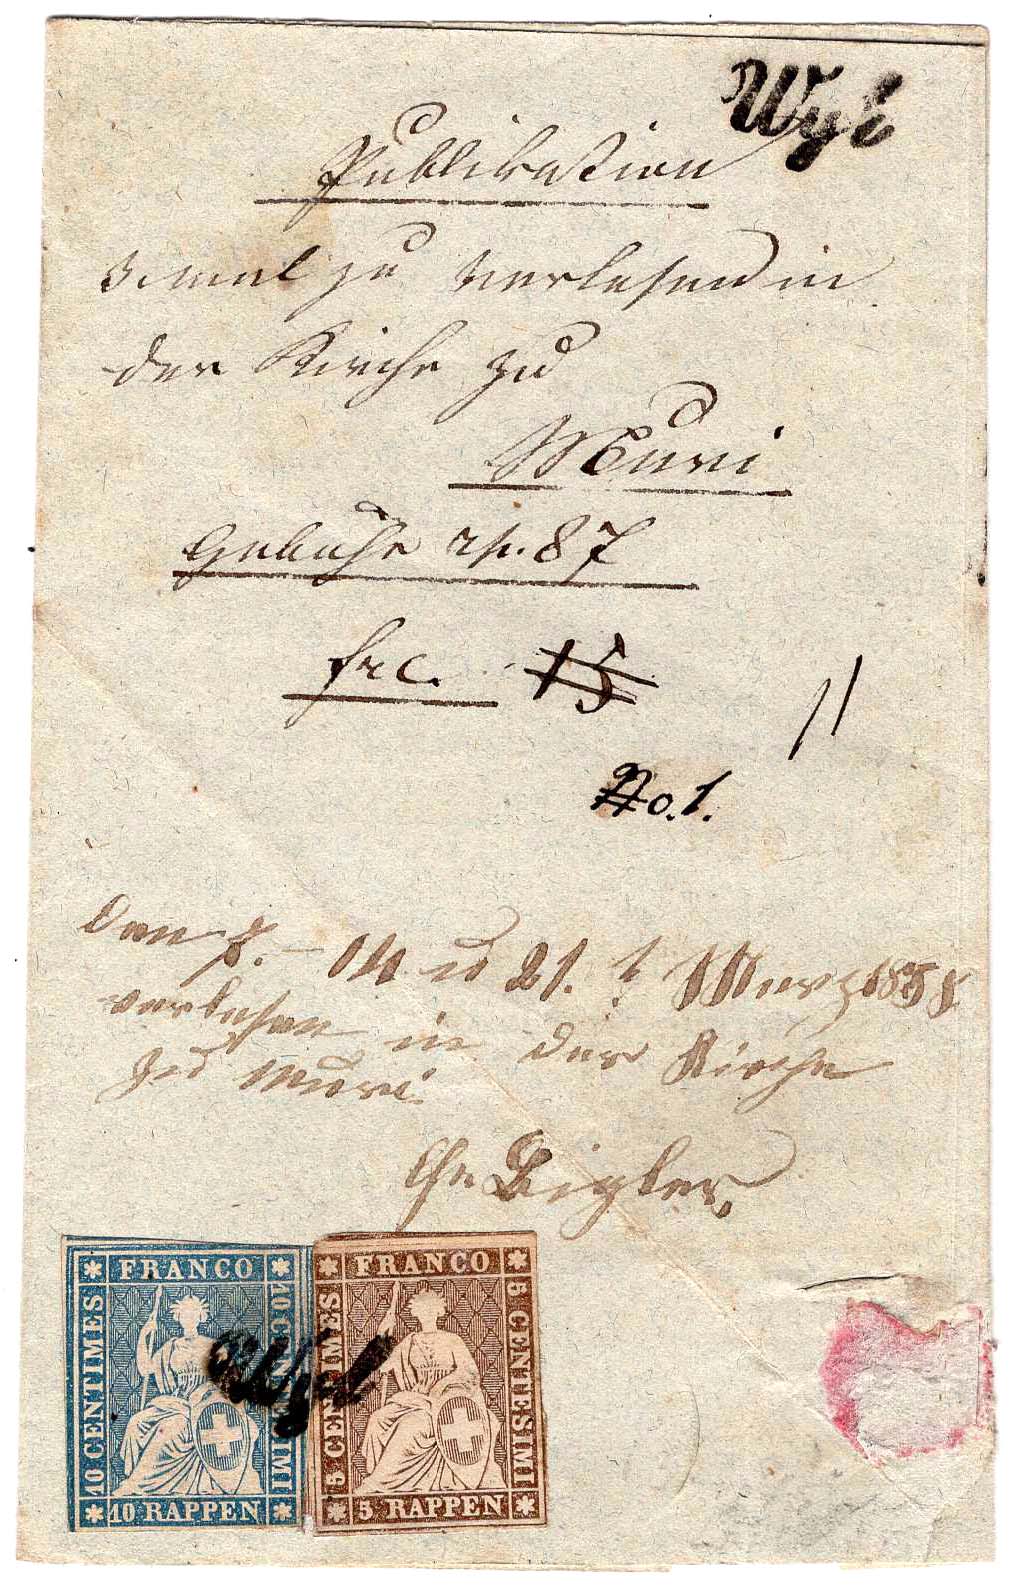 Wyl
Publikation
3. mal zu verlesen in
der Kirche zu
Muri
Gebühr rp. 87
frc. 15
No. 1.
Den 7. - 14 u 21. t Merz 1858
verlesen in der Kirche
zu Muri
Chr Bigler
FRANCO
10 CENTIMES
10 CENTESIMI
10 RAPPEN
Wyl
FRANCO
5 CENTIMES
5 CENTESIMI
5 RAPPEN